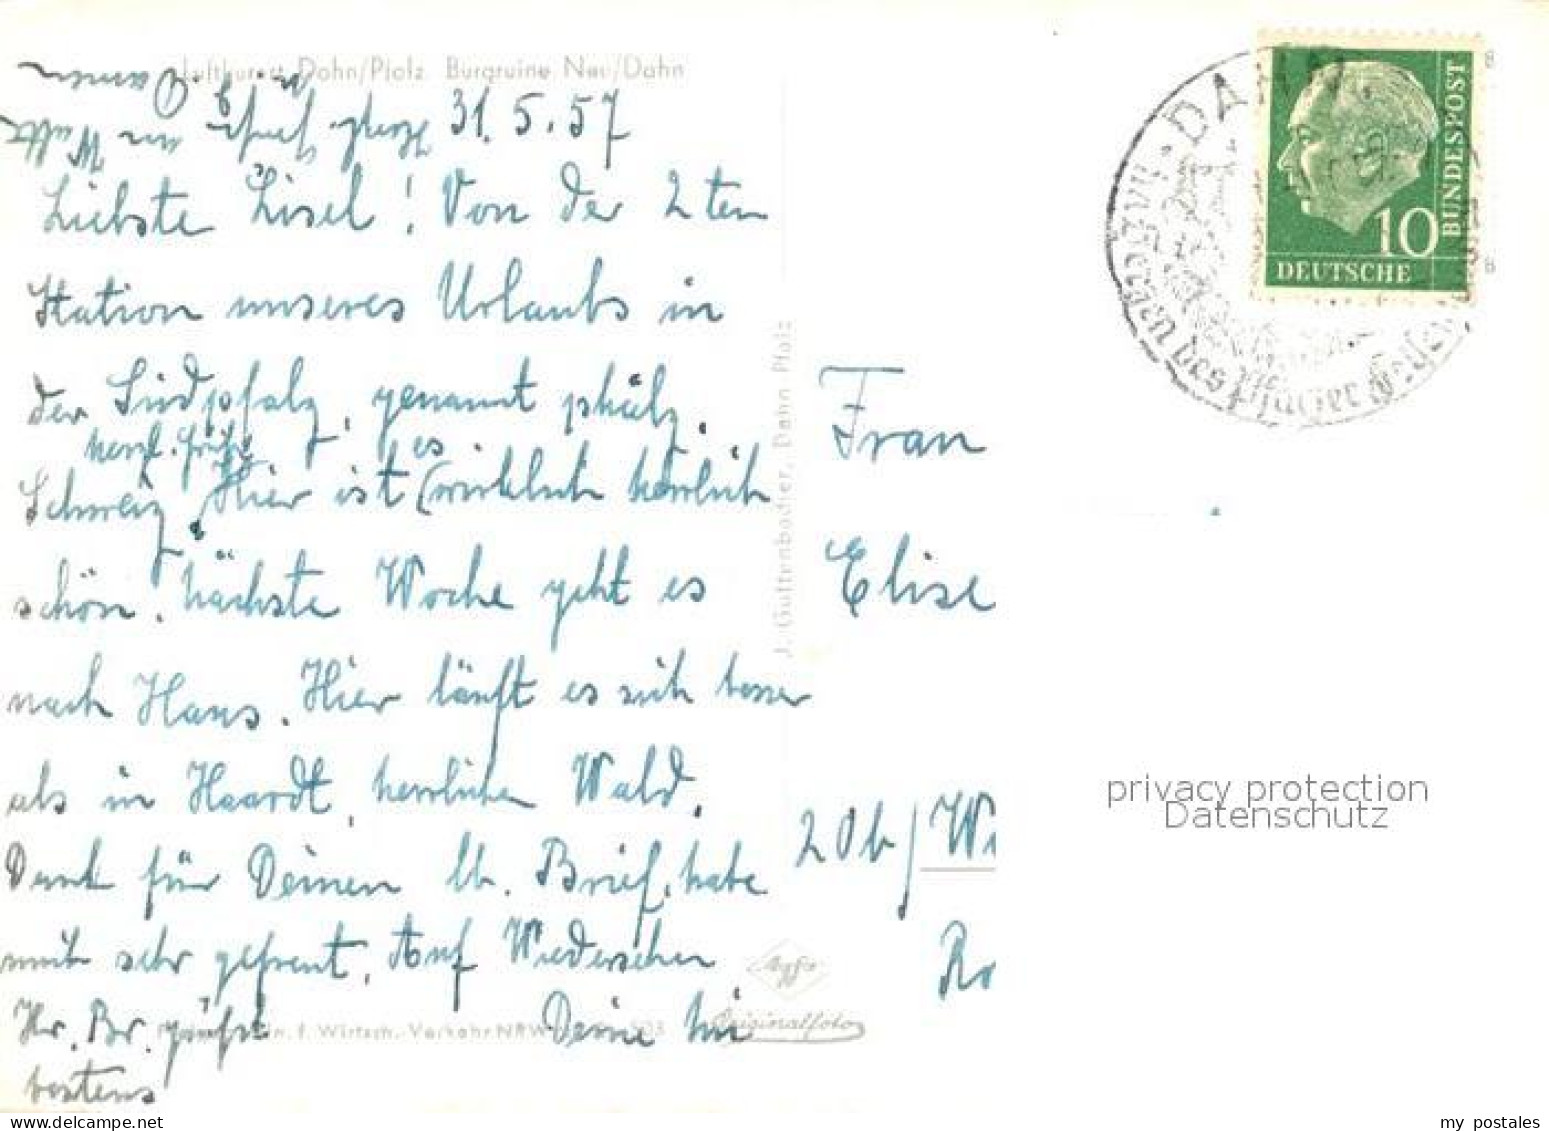 Luftkurort Dahn/Pfalz Burgruine Neu/Dahn
31. 5. 57
Liebste Lisel! Von der 2ten
Station unseres Urlaubs in
der Südpfalz, genannt pfälz.
herzl. Grüße. es
Schweiz. Hier ist (wirklich herrlich
schön. Nächste Woche geht es
nach Haus. Hier läuft es sich besser
als in Haardt, herrlicher Wald.
Dank für Deinen lb. Brief, habe
mich sehr gefreut. Auf Wiedersehen
Hr. Br. grüßt Deine
bestens
f. Wirtsch.-Verkehr NRW
Agfa
Originalfoto
J. Guttenbacher, Dahn Pfalz
Frau
Elise
DAHN
Im Herzen des Pfälzer Felsen
DEUTSCHE
BUNDESPOST
10
B
B
privacy protection
Datenschutz
my postales